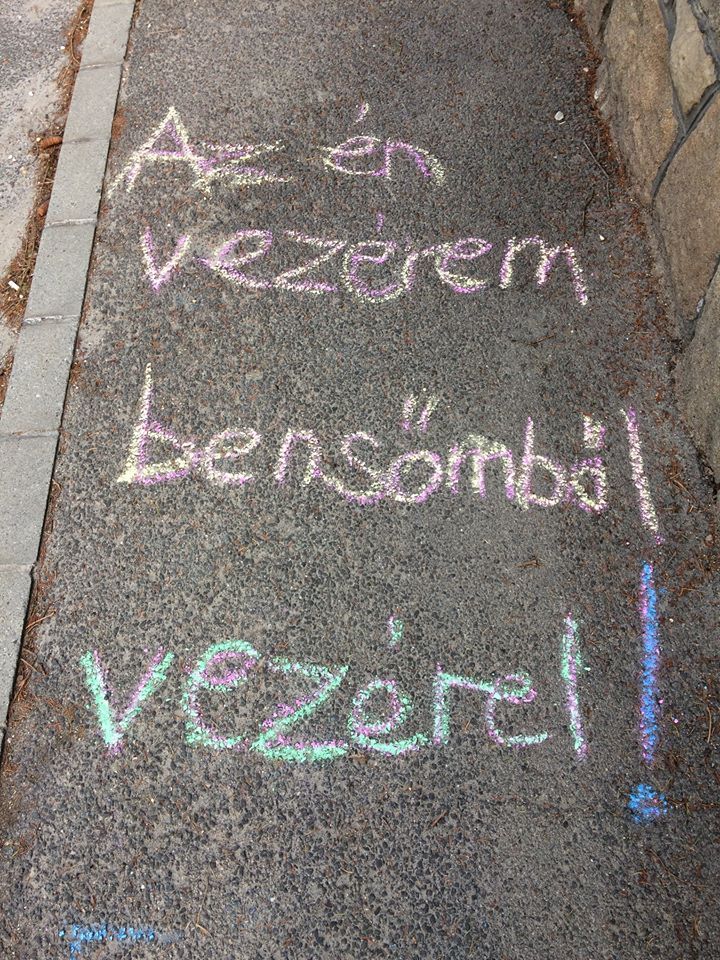 Az én
vezérem
bensőmből
vezérel!